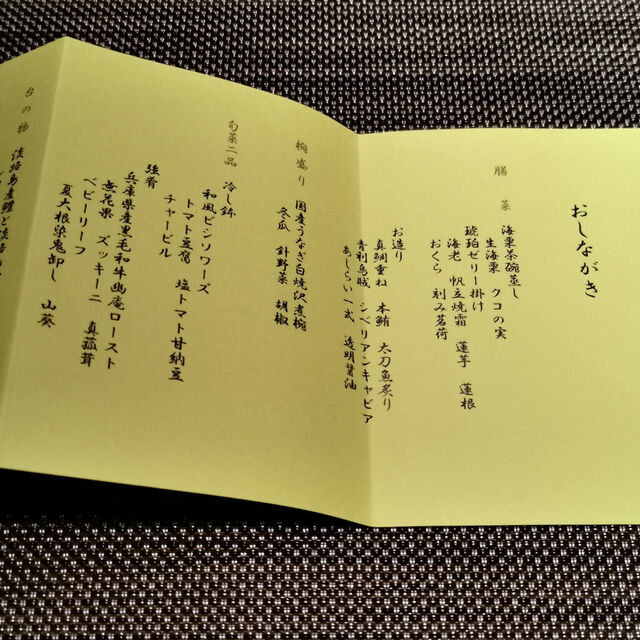 おしながき
膳菜
海栗茶碗蒸し
生海栗 クコの実
琥珀ゼリー掛け
海老 帆立焼霜 蓮芋 蓮根
おくら 刻み茗荷
お造り
真鯛重ね 本鮪 太刀魚炙り
青利烏賊 シベリアンキャビア
あしらい一式 透明醤油
椀盛り
国産うなぎ白焼沢煮椀
冬瓜 針野菜 胡椒
旬菜二品
冷し鉢
和風ビシソワーズ
トマト豆腐 塩トマト甘納豆
チャービル
強肴
兵庫県産黒毛和牛幽庵ロースト
無花果 ズッキーニ 真菰茸
ベビーリーフ
夏大根染鬼卸し 山葵
台の物
淡路島産鱧と淡路